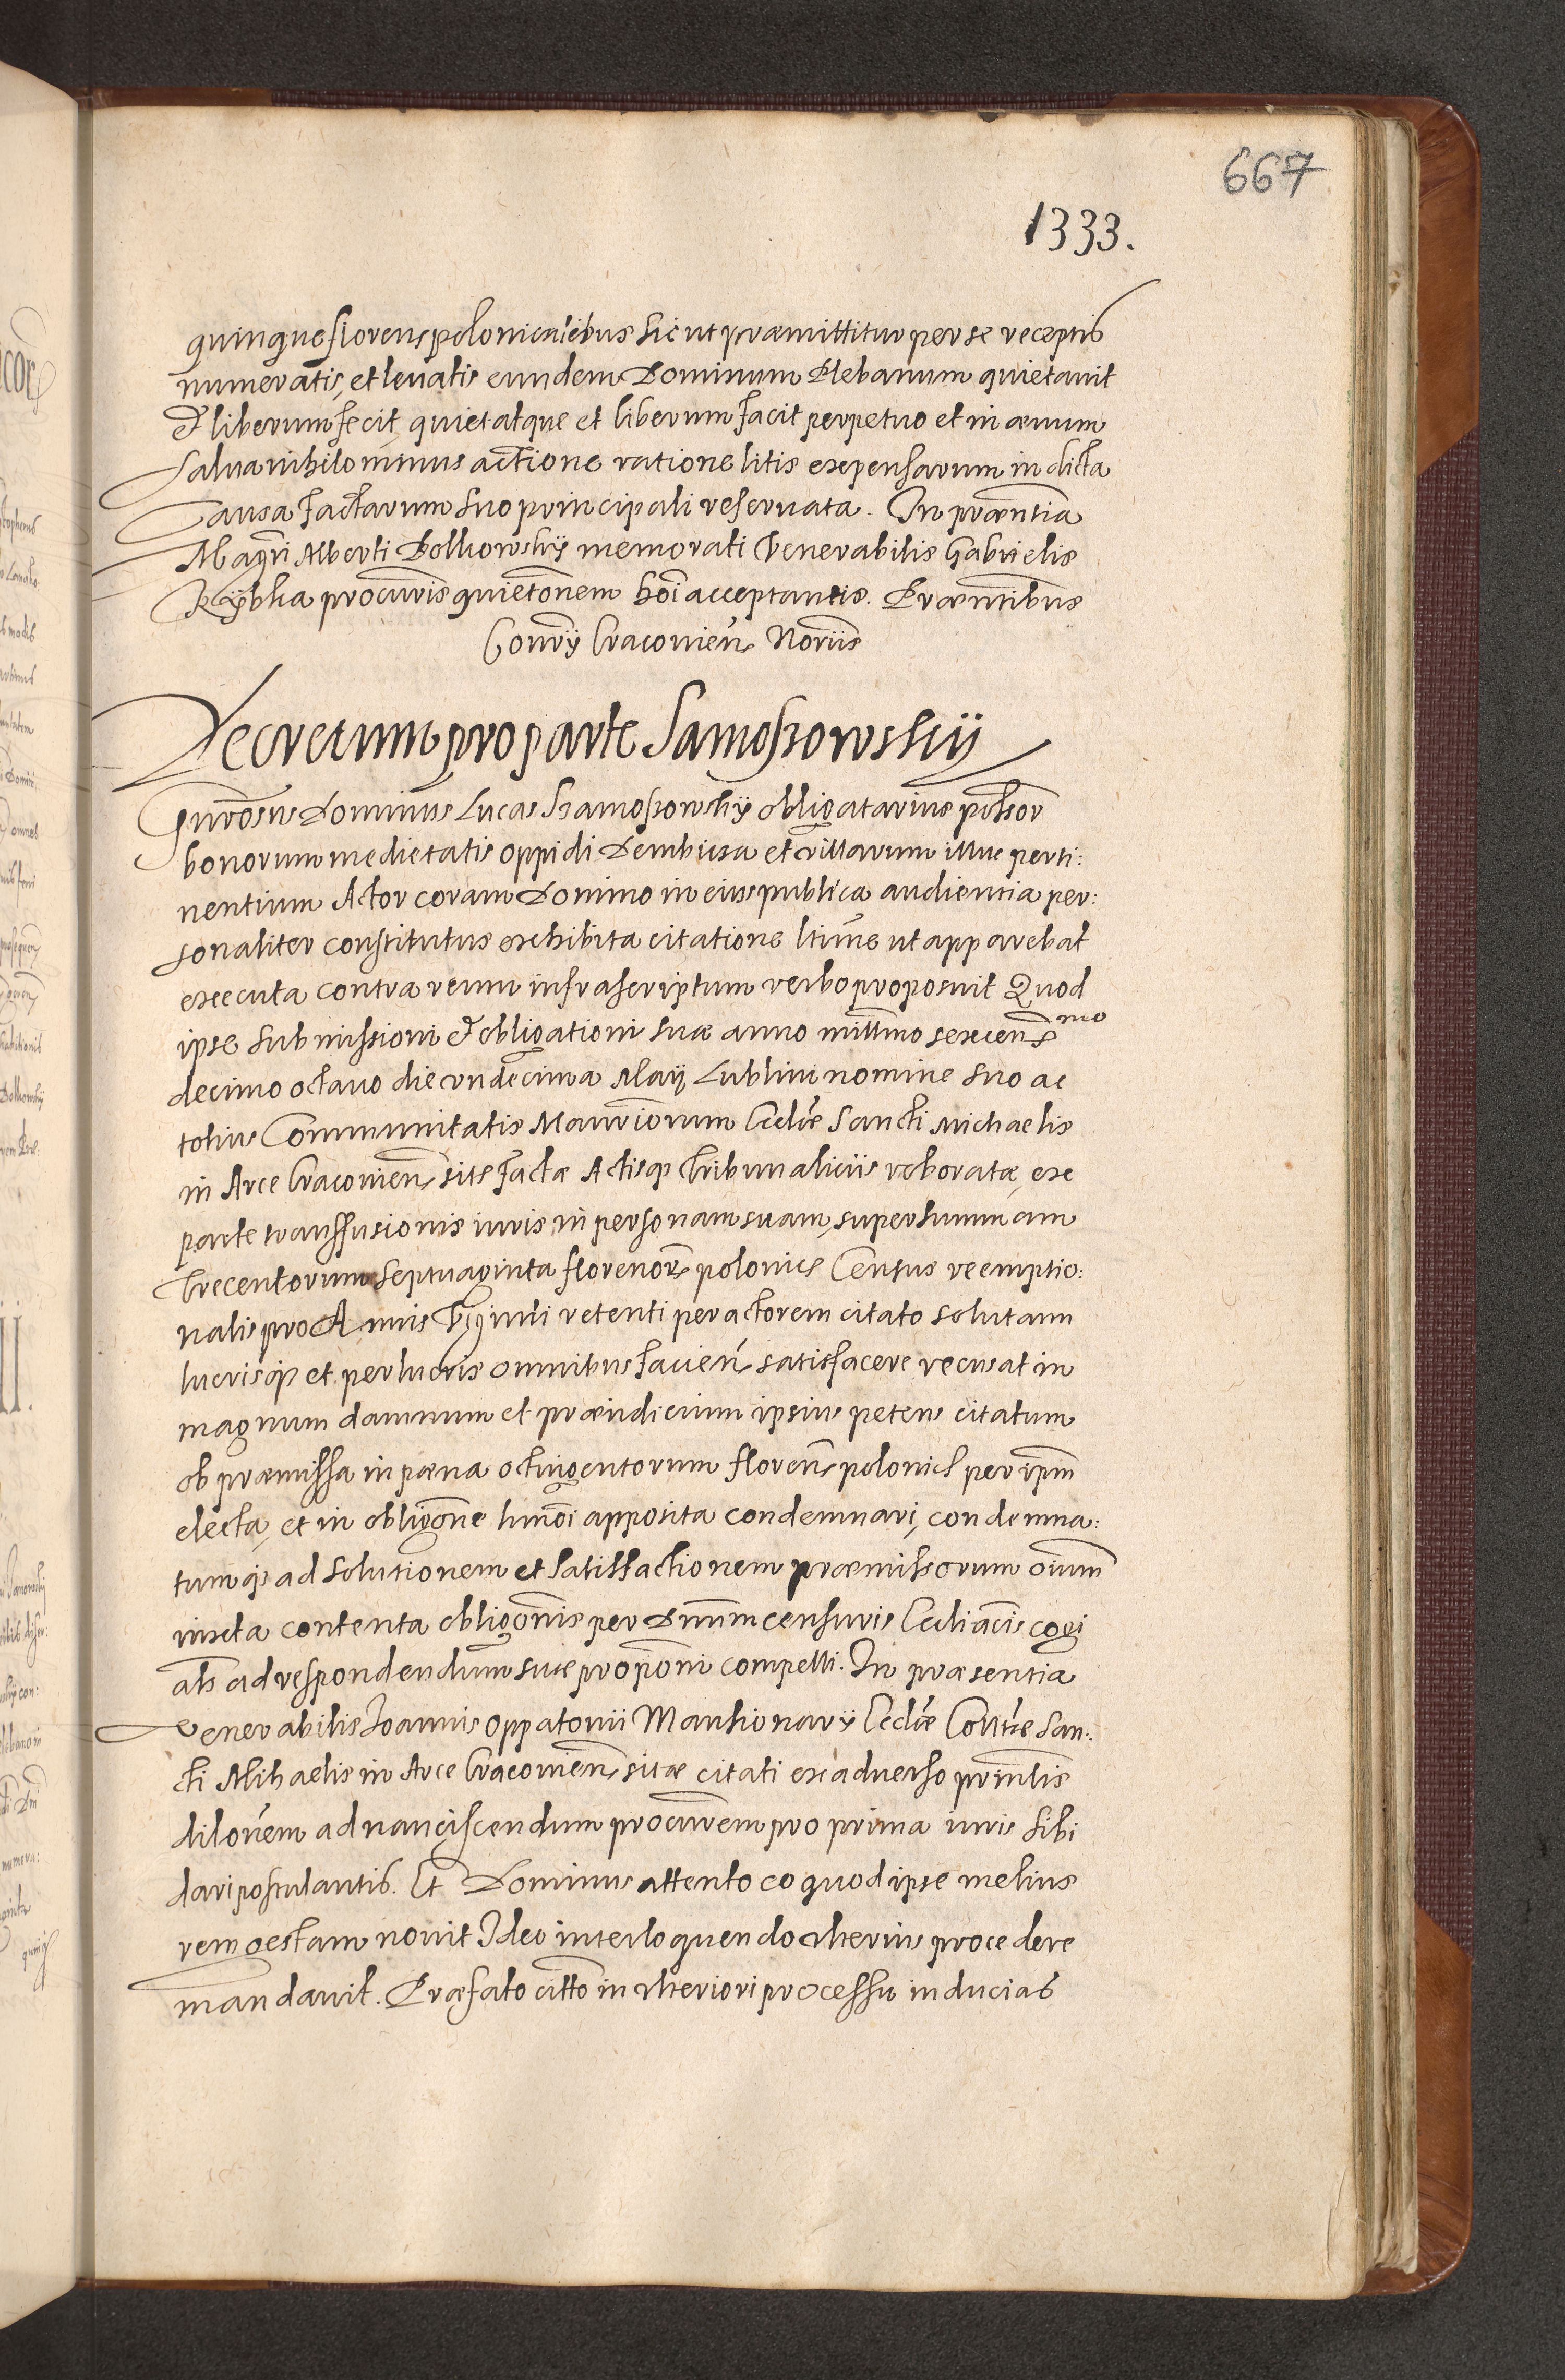 667
1333.
quinque floren polonicalibus sic ut præmittitur per se receptis
numeratis, et levatis eundem Dominum Plebanum quietavit
& liberum fecit quietatque et liberum facit perpetuo et in ævum
Salva nihilominus actione ratione litis expensarum in dicta
Causa factarum suo principali reservata. In præntia
Magri Alberti Dolkowskij memorati Venerabilis Gabrielis
Rÿbka procuris quietonem hoi acceptantis. Præntibus
Conrij Cracovien Noriis
Decretum pro parte Samoszowskij
Gnrosus Dominus Lucas Szamoszowskij obligatarius possor
bonorum medietatis oppidi Dembicza et villarum illuc perti:
nentium Actor coram Domino in eius publica audientia per:
sonaliter constitutus exhibita citatione ltime ut apparebat
executa contra reum infrascriptum verbo proposuit Quod
ipse submissioni & obligationi suæ anno milltmo sexcens mo
decimo octavo die undecima Maij Lublini nomine suo ac
totius Communitatis Mansiorum Ecclie Sancti Michaelis
in Arce Cracovien site factæ Actisq Tribunaliciis roboratæ, ex
parte transfusionis iuris in personam suam, super summam
Trecentorum Septuaginta florenor polonicl Census reemptio:
nalis pro Annis Viginti retenti per actorem citato solutam
lucrisq et perlucris omnibus facien satisfacere recusat in
magnum damnum et præiudicium ipsius petens citatum
ob præmissa in pæna octingentorum floren polonicl per ipm
electa, et in obligone hmoi apposita condemnari, condemna:
tumq ad solutionem et satisfactionem præmissorum oium
iuxta contenta obligonis per Dnum censuris Eccliacis cogi
als ad respondendum suæ proponi compelli. In præsentia
Venerabilis Joannis Oppatovii Mansionarij Ecclie Collte San:
cti Mihaelis in Arce Cracovien sitæ citati ex adverso prntis
dilonem ad nanciscendum procurem pro prima iuris sibi
dari postulantis. Et Dominus attento eo quod ipse melius
rem gestam novit Ideo interloquendo ulterius procedere
mandavit. Præfato citto in ulteriori processu inducias